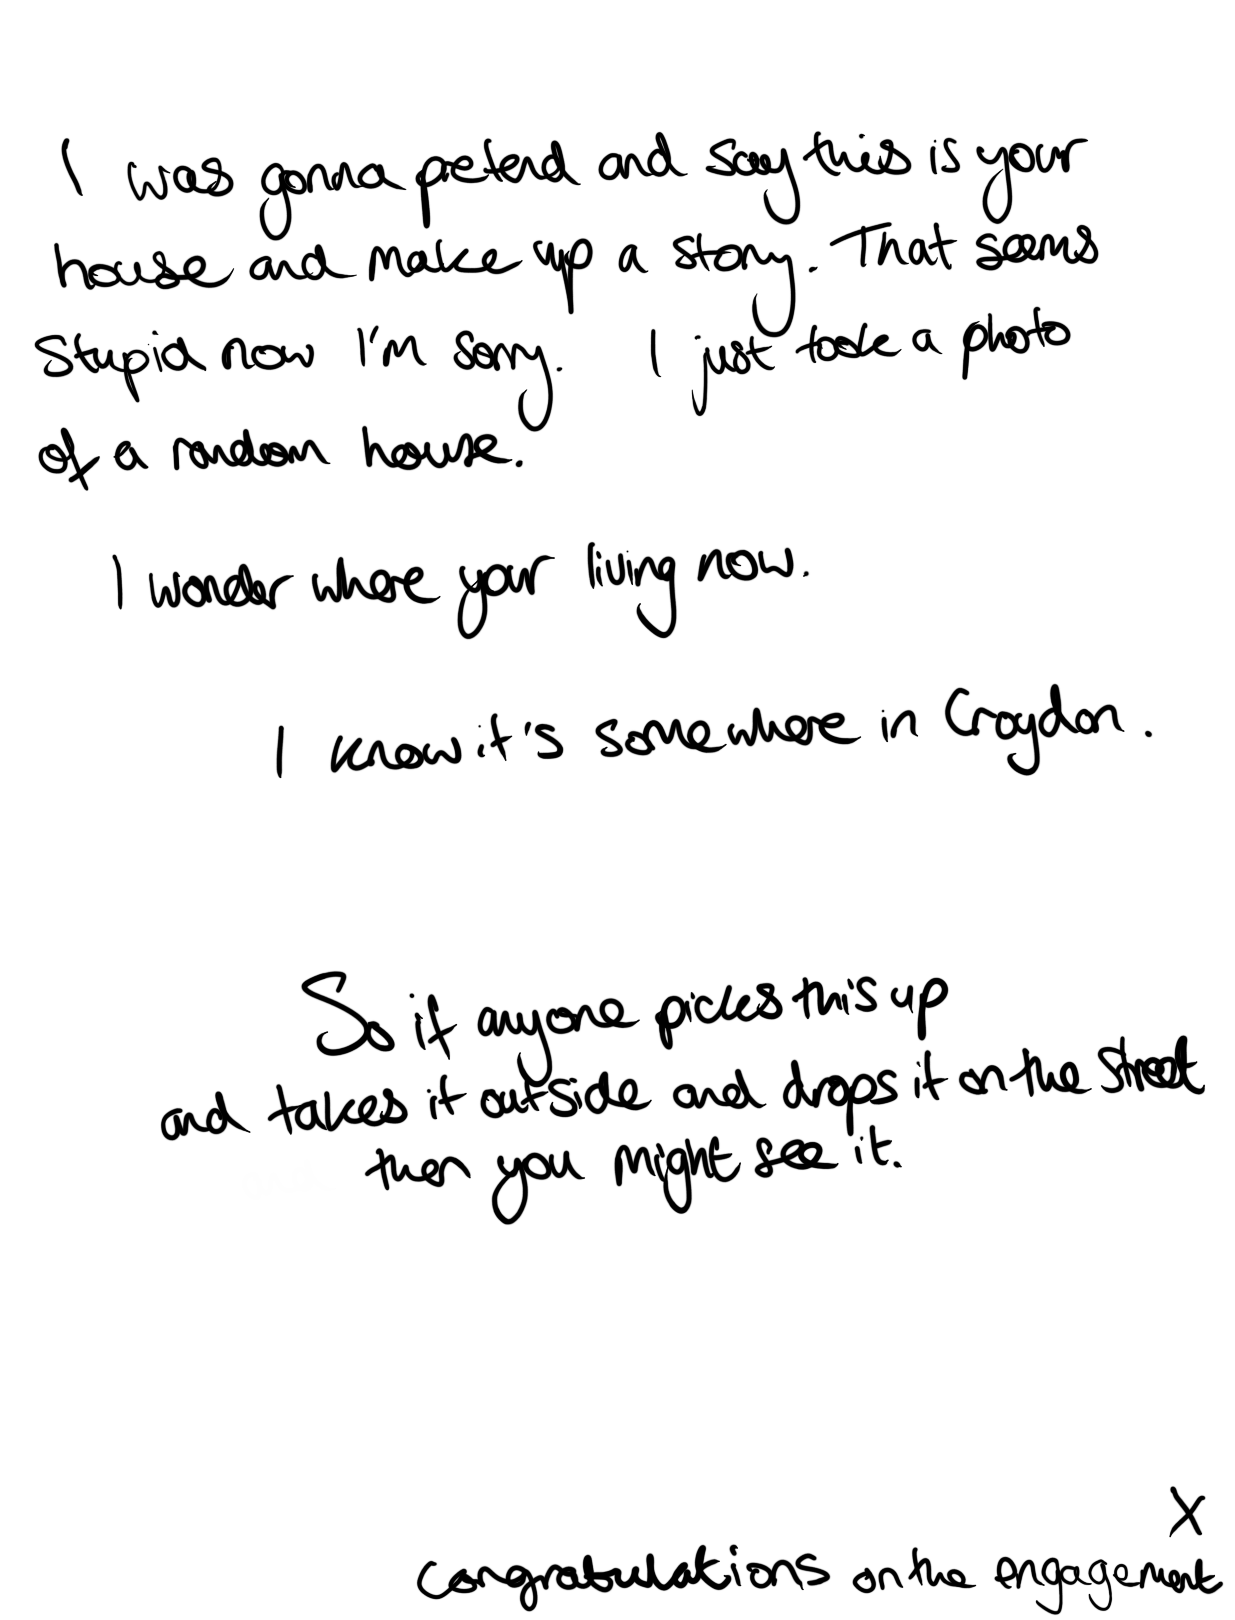 I was gonna pretend and say this is your
house and make up a story. That seems
Stupid now I'm sorry. I just took a photo
of a random house.
I wonder where your living now.
I know it's somewhere in Croydon.
So if anyone picks this up
and takes it outside and drops it on the street
then you might see it.
X
congratulations on the engagement